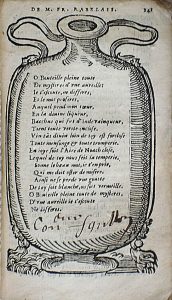 DE M. FR. RABELAIS.
O Bouteille pleine toute
De mysteres d'une aureille
Ie t'escoute, ne differes,
Et le mot proferes,
Auquel pend mon cœur.
En la divine liqueur,
Bacchus qui fut d'Inde vainqueur
Tient toute verité enclose.
Vin tãt divin loin de toy est forclose
Toute mensonge & toute tromperie.
En joye soit l'Aire de Noach close,
Lequel de toy nous fist la temperie,
Sonne le beau mot, ie t'en prie,
Qui me doit oster de misere.
Ainsi ne se perde une goutte
De toy soit blanche, ou soit vermeille.
O Bouteille pleine toute de mysteres,
D'une aureille ie t'escoute
Ne differes.